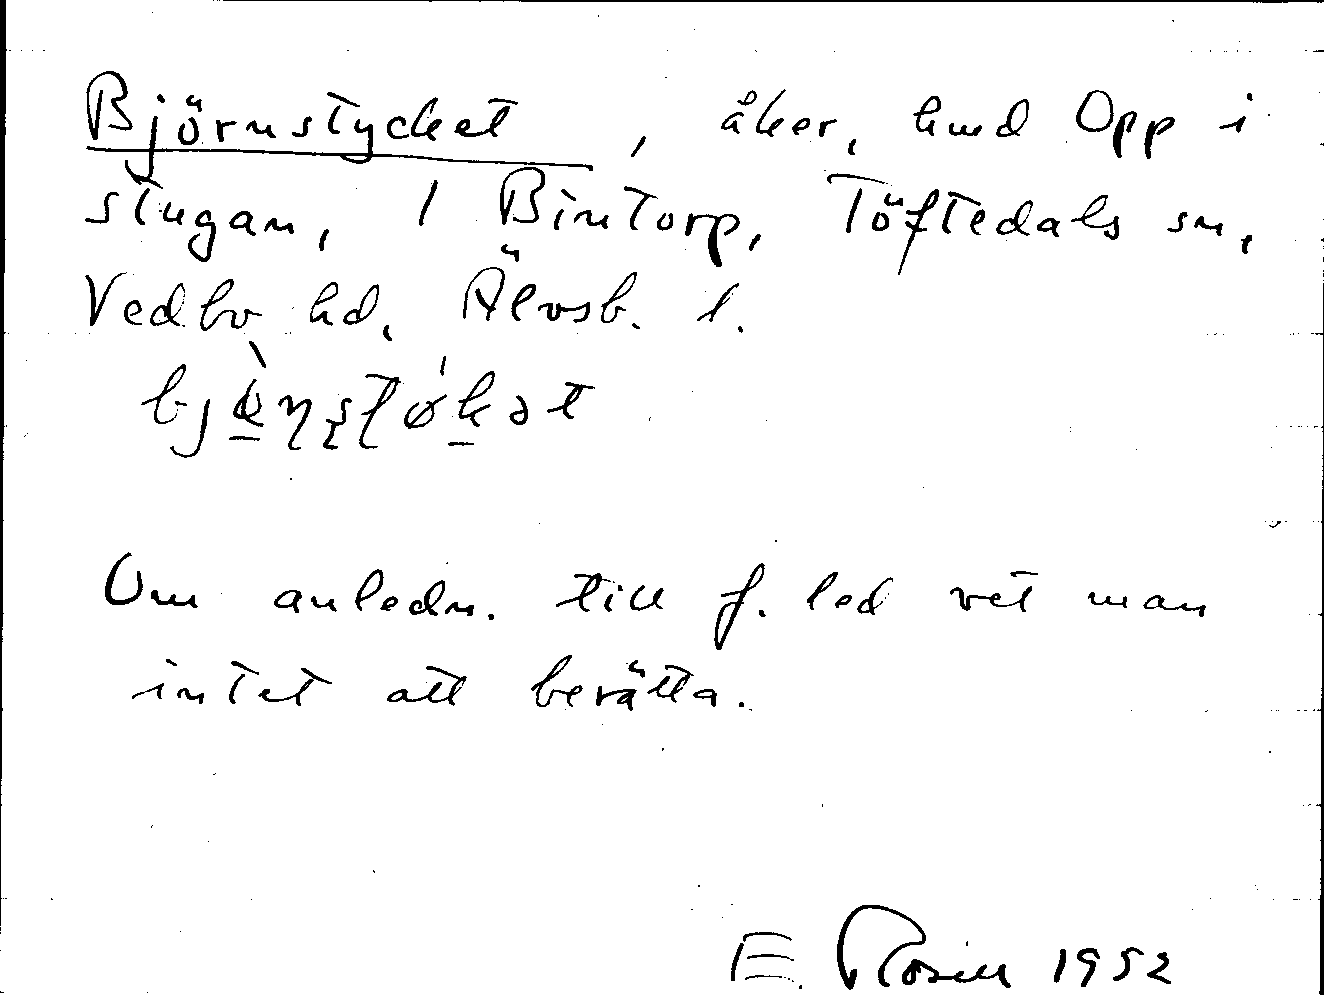 Björnstycket, åker, hmd Opp i
stugan, 1 Bintorp, Töftedals sn,
Vedbo hd, Älvsb. l.
Om anledn. till f. led vet man
intet att berätta.
E. Rosell 1952